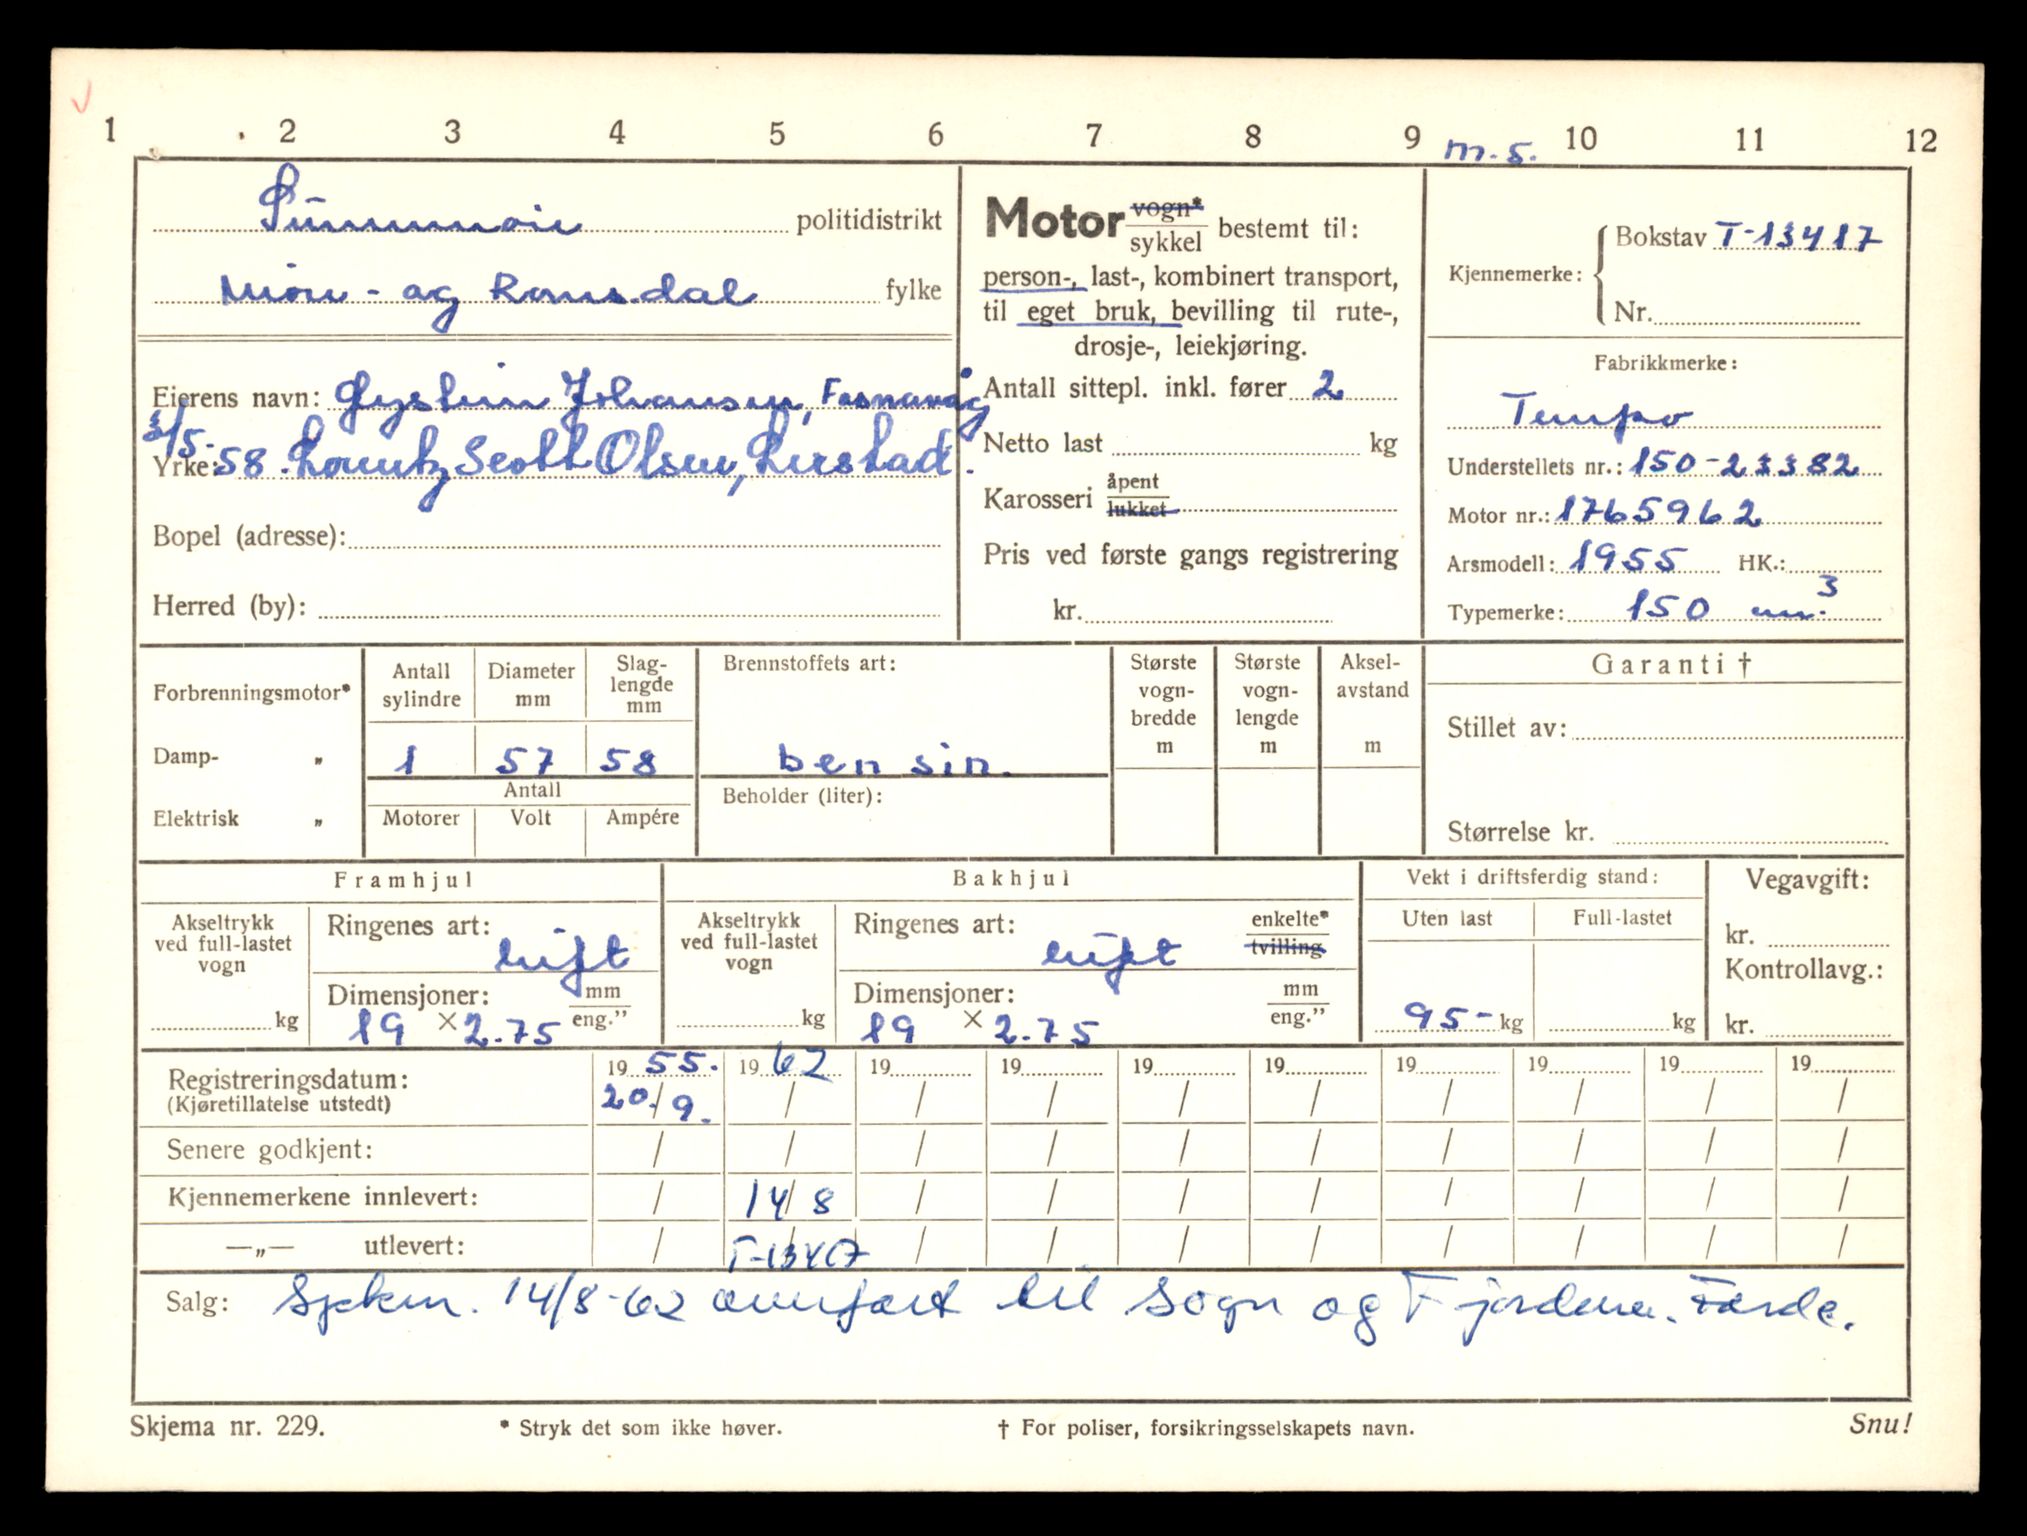 1 2 3 4 5 6 7 8 9 10 11 12
m.s.
Sunnmøre politidistrikt
Møre - og Romsdal fylke
Eierens navn: Øystein Johansen, Fosnavåg
3/5-58. Lorentz Scott Olsen, Leirstad.
Yrke:
Bopel (adresse):
Herred (by):
Motor vogn* sykkel bestemt til:
person-, last-, kombinert transport,
til eget bruk, bevilling til rute-,
drosje-, leiekjøring.
Antall sittepl. inkl. fører 2
Netto last kg
Karosseri åpent lukket
Pris ved første gangs registrering
kr.
Kjennemerke: Bokstav T-13417
Nr.
Fabrikkmerke:
Tempo
Understellets nr.: 150-23382
Motor nr.: 1765962
Arsmodell: 1955 HK.:
Typemerke: 150 cm.3
Forbrenningsmotor*
Damp- „
Elektrisk „
Antall sylindre
Diameter mm
Slag-lengde mm
1 57 58
Antall
Motorer Volt Ampére
Brennstoffets art:
bensin.
Beholder (liter):
Største vogn-bredde m
Største vogn-lengde m
Aksel-avstand m
Garanti †
Stillet av:
Størrelse kr.
Framhjul
Akseltrykk ved full-lastet vogn
kg
Ringenes art: luft
Dimensjoner: mm eng.”
19 × 2.75
Bakhjul
Akseltrykk ved full-lastet vogn
kg
Ringenes art: luft enkelte* tvilling
Dimensjoner: mm eng.”
19 × 2.75
Vekt i driftsferdig stand:
Uten last Full-lastet
95- kg kg
Vegavgift:
kr.
Kontrollavg.:
kr.
Registreringsdatum: 1955. 1962 19 19 19 19 19 19 19 19
(Kjøretillatelse utstedt) 20./9. / / / / / / / / /
Senere godkjent: / / / / / / / / / /
Kjennemerkene innlevert: / 14/8 / / / / / / / /
—„— utlevert: / T-13417 / / / / / / / /
Salg: Spkm. 14/8-62 overført til Sogn og Fjordene. Førde.
Skjema nr. 229.
* Stryk det som ikke høver.
† For poliser, forsikringsselskapets navn.
Snu!